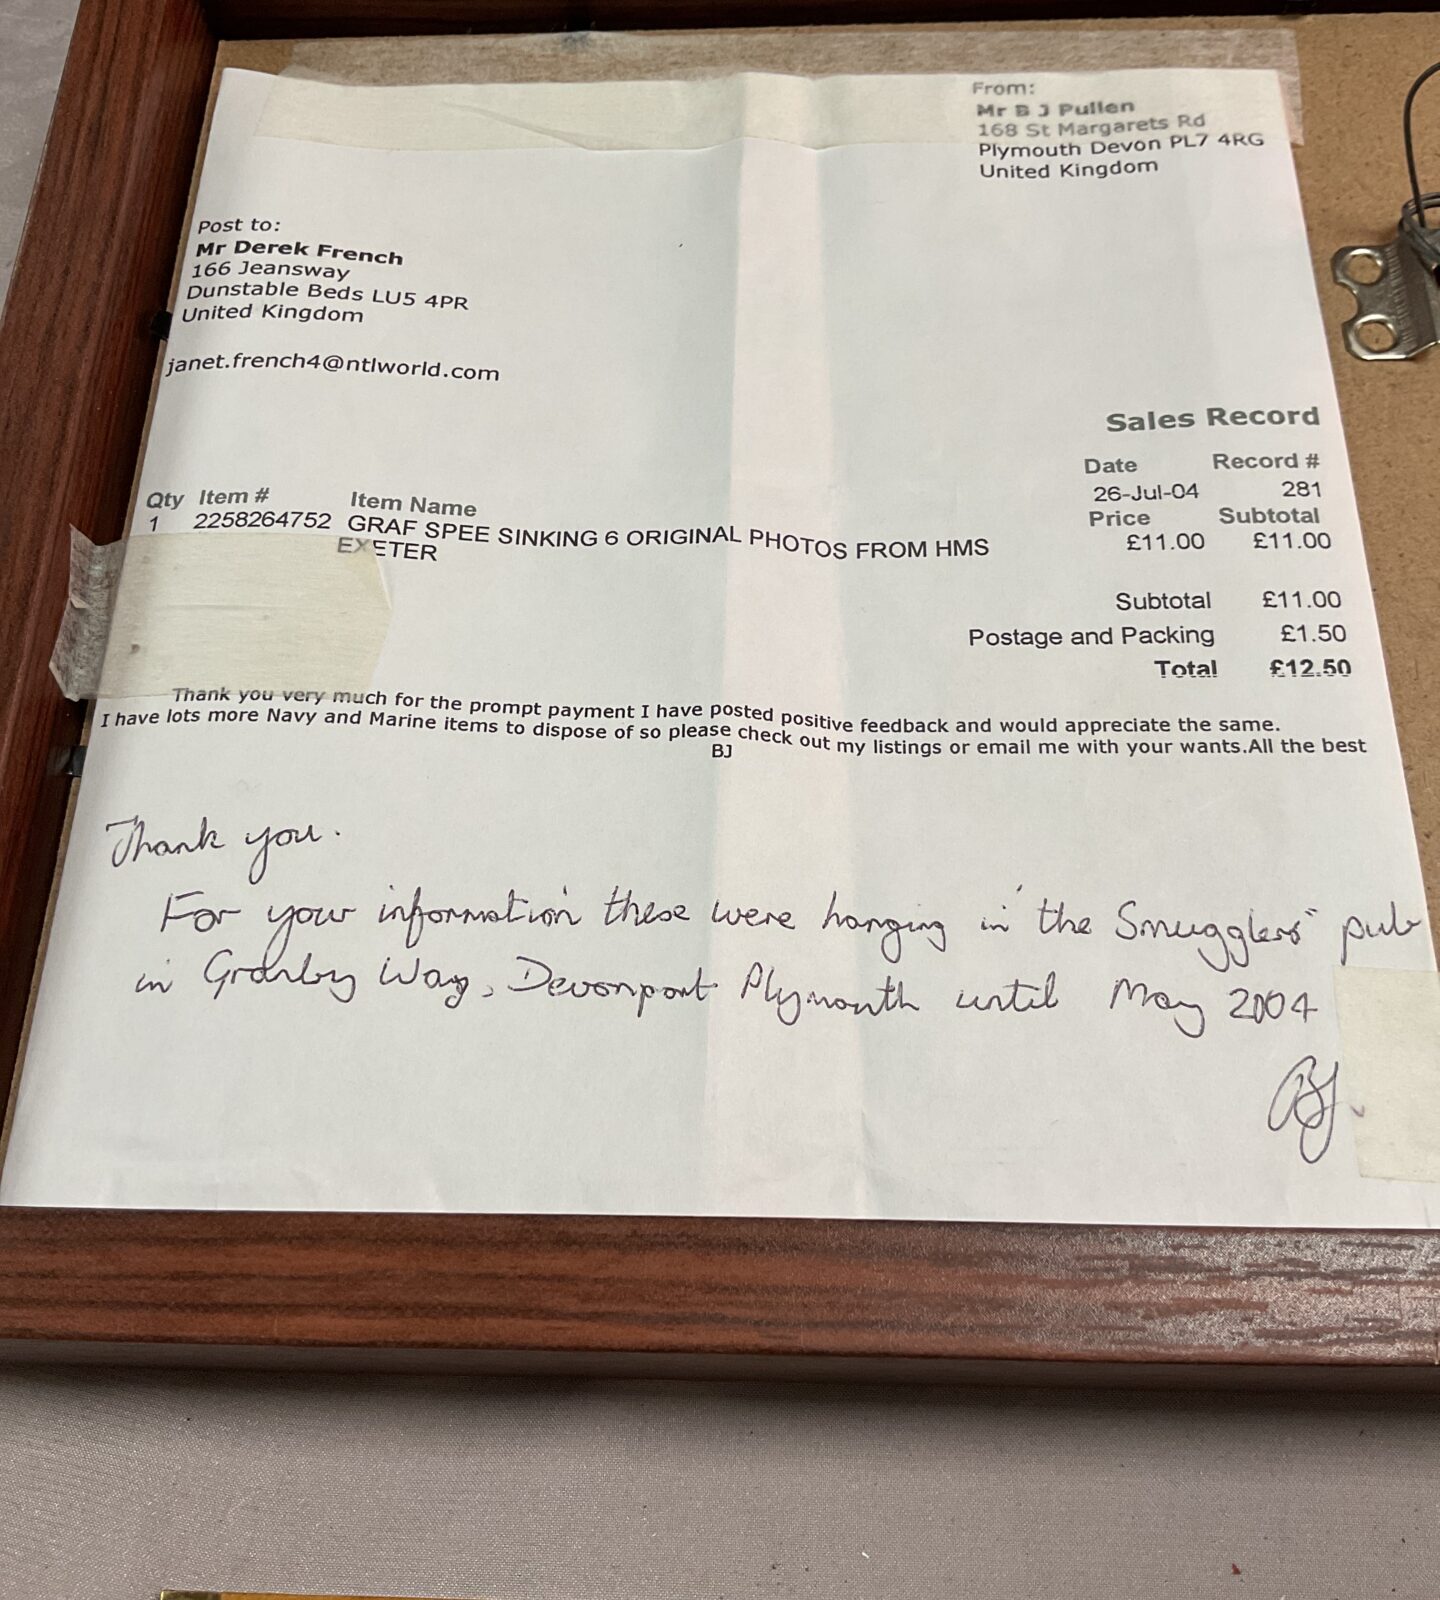 From:
Mr B J Pullen
168 St Margarets Rd
Plymouth Devon PL7 4RG
United Kingdom
Post to:
Mr Derek French
166 Jeansway
Dunstable Beds LU5 4PR
United Kingdom
janet.french4@ntlworld.com
Sales Record
Date Record #
26-Jul-04 281
Qty Item # Item Name Price Subtotal
1 2258264752 GRAF SPEE SINKING 6 ORIGINAL PHOTOS FROM HMS £11.00 £11.00
EXETER
Subtotal £11.00
Postage and Packing £1.50
Total £12.50
Thank you very much for the prompt payment I have posted positive feedback and would appreciate the same.
I have lots more Navy and Marine items to dispose of so please check out my listings or email me with your wants.All the best
BJ
Thank you.
For your information these were hanging in 'the Smugglers" pub
in Granby Way, Devonport Plymouth until May 2004
BJ.